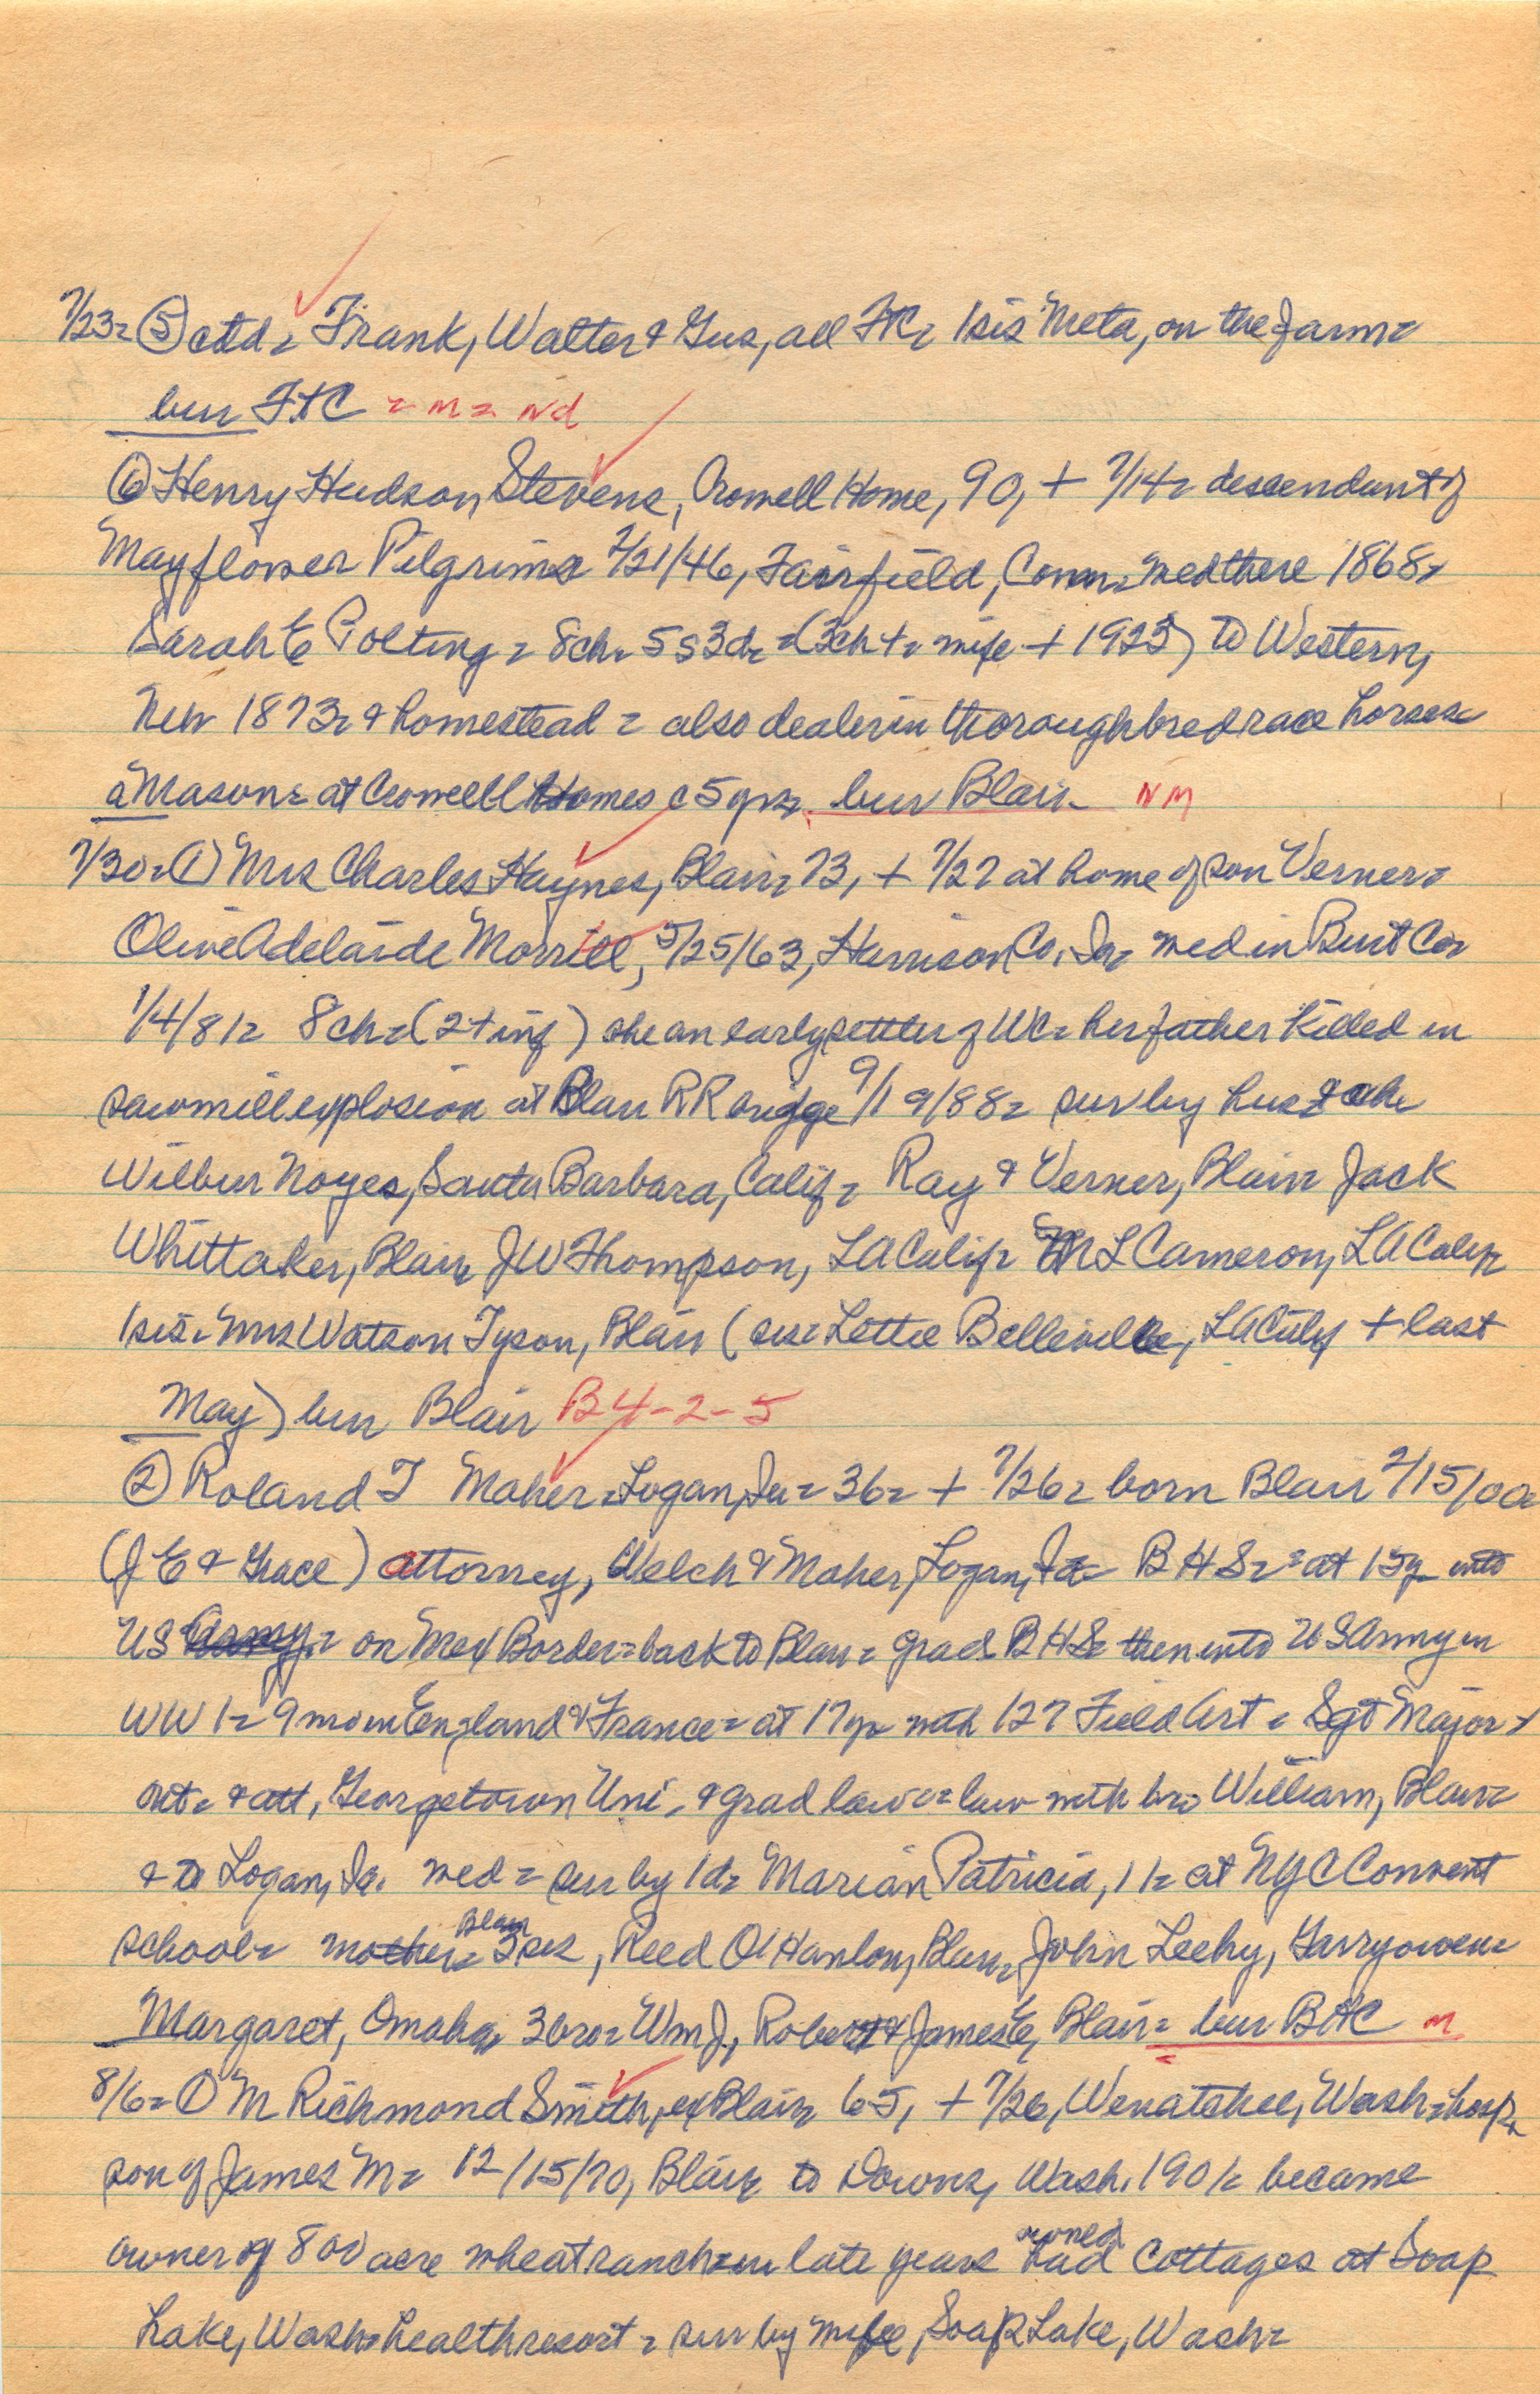 7/23= (5) ctd= Frank, Walter & Gus, all FtC= 1sis Meta, on the farm=
bur FtC = m = Nd
(6) Henry Hudson Stevens, Crowell Home, 90, + 7/14= descendant of
Mayflower Pilgrims 2/21/46, Fairfield, Conn= med there 1868=
Sarah E = 8ch= 5s 3d= (3ch += wife + 1925) to Western,
Neb 1873= & homestead = also dealer in thoroughbred race horses=
a Mason= at Crowell Homes c 5 yrs= bur Blair= NM
7/30= (1) Mrs Charles Haynes, Blair= 73, + 7/27 at home of son Verner=
Olive Adelaide Morrill, 5/25/63, Harrison Co, Ia= med in Burt Co=
1/4/81= 8ch= (2 + inf) she an early settler of WC= her father killed in
sawmill explosion at Blair RR bridge 9/19/88= sur by hus &
Wilbur Noyes, Santa Barbara, Calif= Ray & Verner, Blair= Jack
Whittaker, Blair= JW Thompson, LA Calif= M L Cameron, LA Calif=
1sis= Mrs Watson Tyson, Blair (sis= Lettie Belleville, LA Calif + last
May) bur Blair B4-2-5
(2) Roland T Maher= Logan, Ia= 36= + 7/26= born Blair 2/15/00=
(J E & Grace) attorney, Welch & Maher, Logan, Ia= B H S= = at 15y= into
US Army= on Mex Border= back to Blair= grad B H S= then into US Army in
WW 1= 9 mo in England & France= at 17yr with 127 Field Art = Sgt Major=
& att, Georgetown Uni, & grad law= law with bro William, Blair=
& to Logan, Ia. med = sur by 1d= Marian Patricia, 11= at NYC Convent
school= mother= Blair 3sis, Reed O'Hanlon, Blair= John Leehy, Garryowen=
Margaret, Omaha= 3bro= Wm J, Robert & James E, Blair= bur BHC m
8/6= (1) M Richmond Smith, ex Blair= 65, + 7/26, Wenatchee, Wash= hosp=
son of James M= 12/15/70, Blair= to Downs, Wash. 1901= became
owner of 800 acre wheat ranch= in late years had owned cottages at Soap
Lake, Wash= health resort = sur by wife, Soap Lake, Wash=